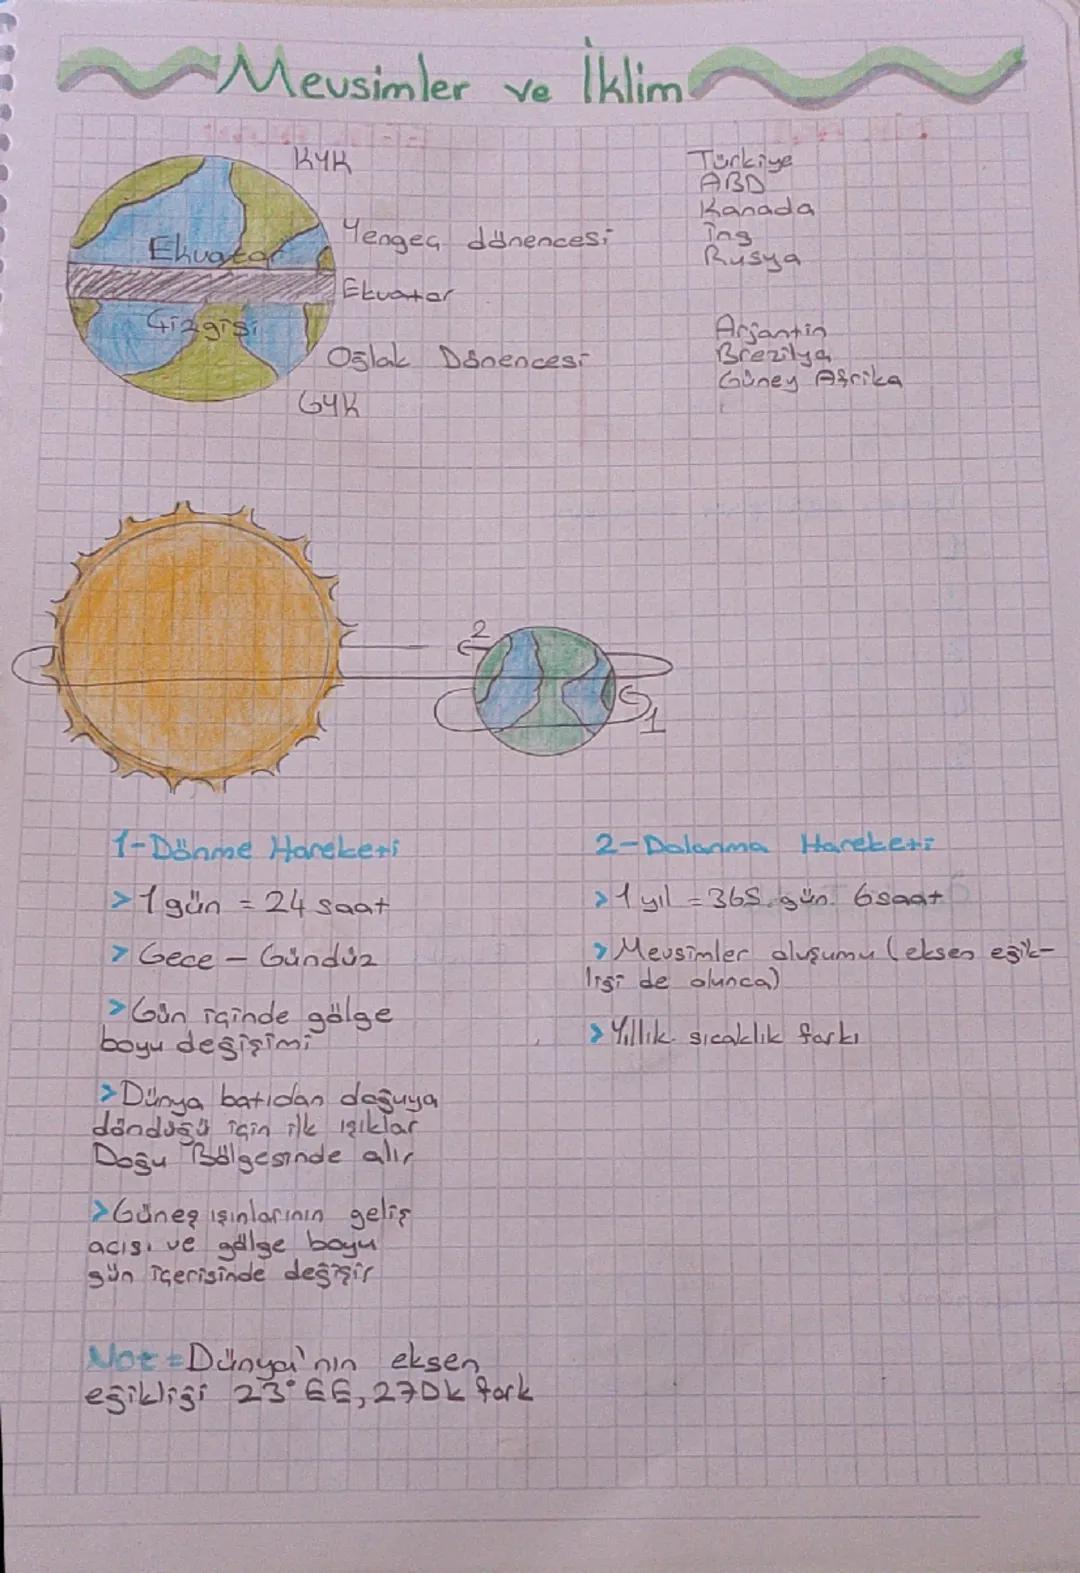 Mevsimler ve İklim
KYK
Yengeç dönencesi
Ekvator
Ekvator
Çizgisi
Oğlak Dönencesi
GYK
Türkiye
ABD
Kanada
İng
Rusya
Arjantin
Brezilya
Güney Afrika
2
1
1-Dönme Hareketi
>1 gün = 24 saat
> Gece - Gündüz
>Gün içinde gölge
boyu değişimi
>Dünya batıdan doğuya
döndüğü için ilk ışıklar
Doğu Bölgesinde alır
>Güneş ışınlarının geliş
açısı ve gölge boyu
gün içerisinde değişir
2-Dolanma Hareketi
>1 yıl = 365 gün 6 saat
>Mevsimler oluşumu (eksen eğik-
liği de olunca)
>Yıllık sıcaklık farkı
Not = Dünya'nın eksen
eğikliği 23° EE, 27Dk fark